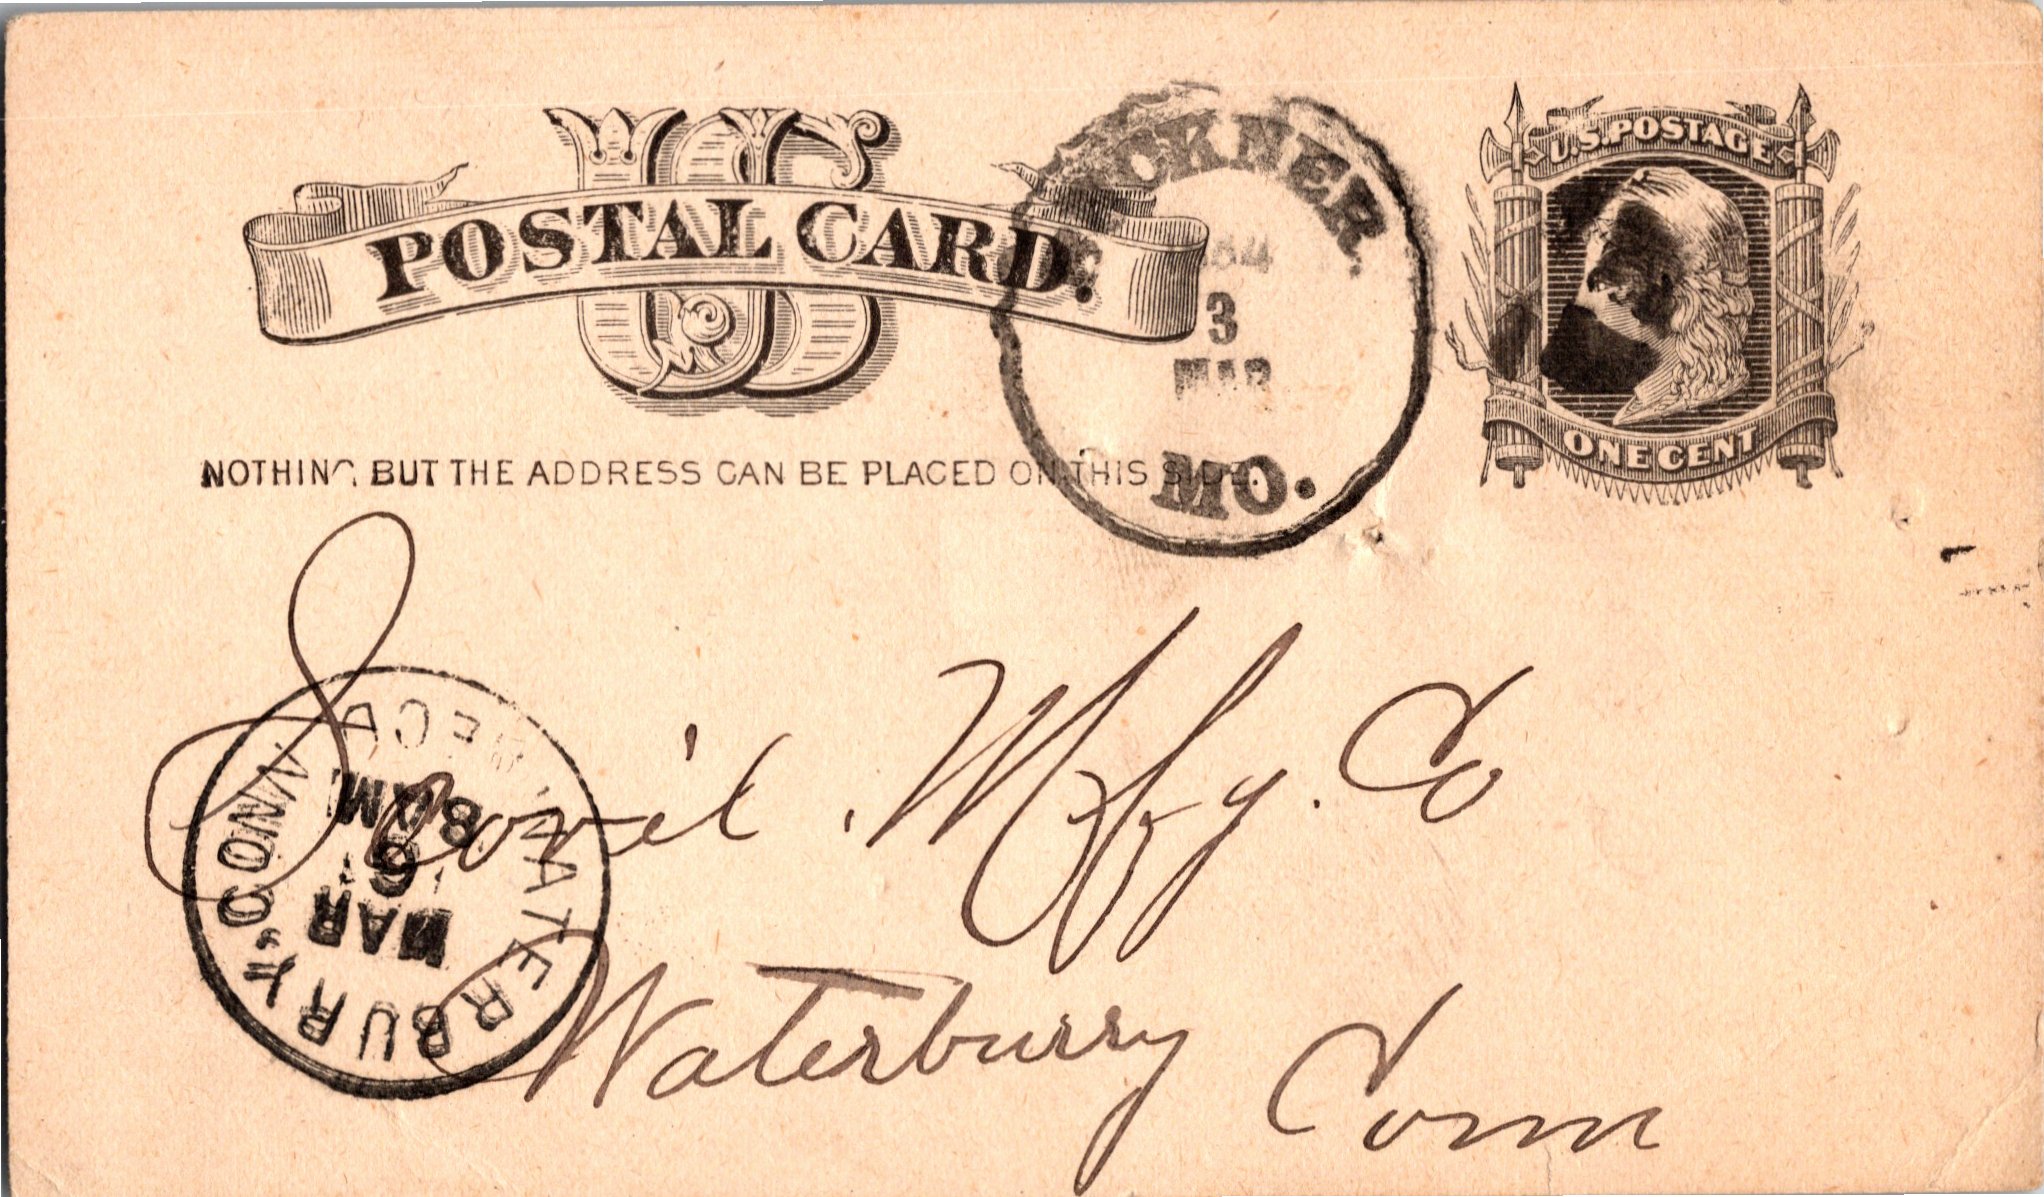 US
POSTAL CARD.
U.S. POSTAGE
ONE CENT
CKNER.
84
3
MAR
MO.
NOTHING BUT THE ADDRESS CAN BE PLACED ON THIS SIDE.
Scovil Mfg. Co
Waterburry Conn
WATERBURY CONN.
REC'D
MAR
6
8 AM